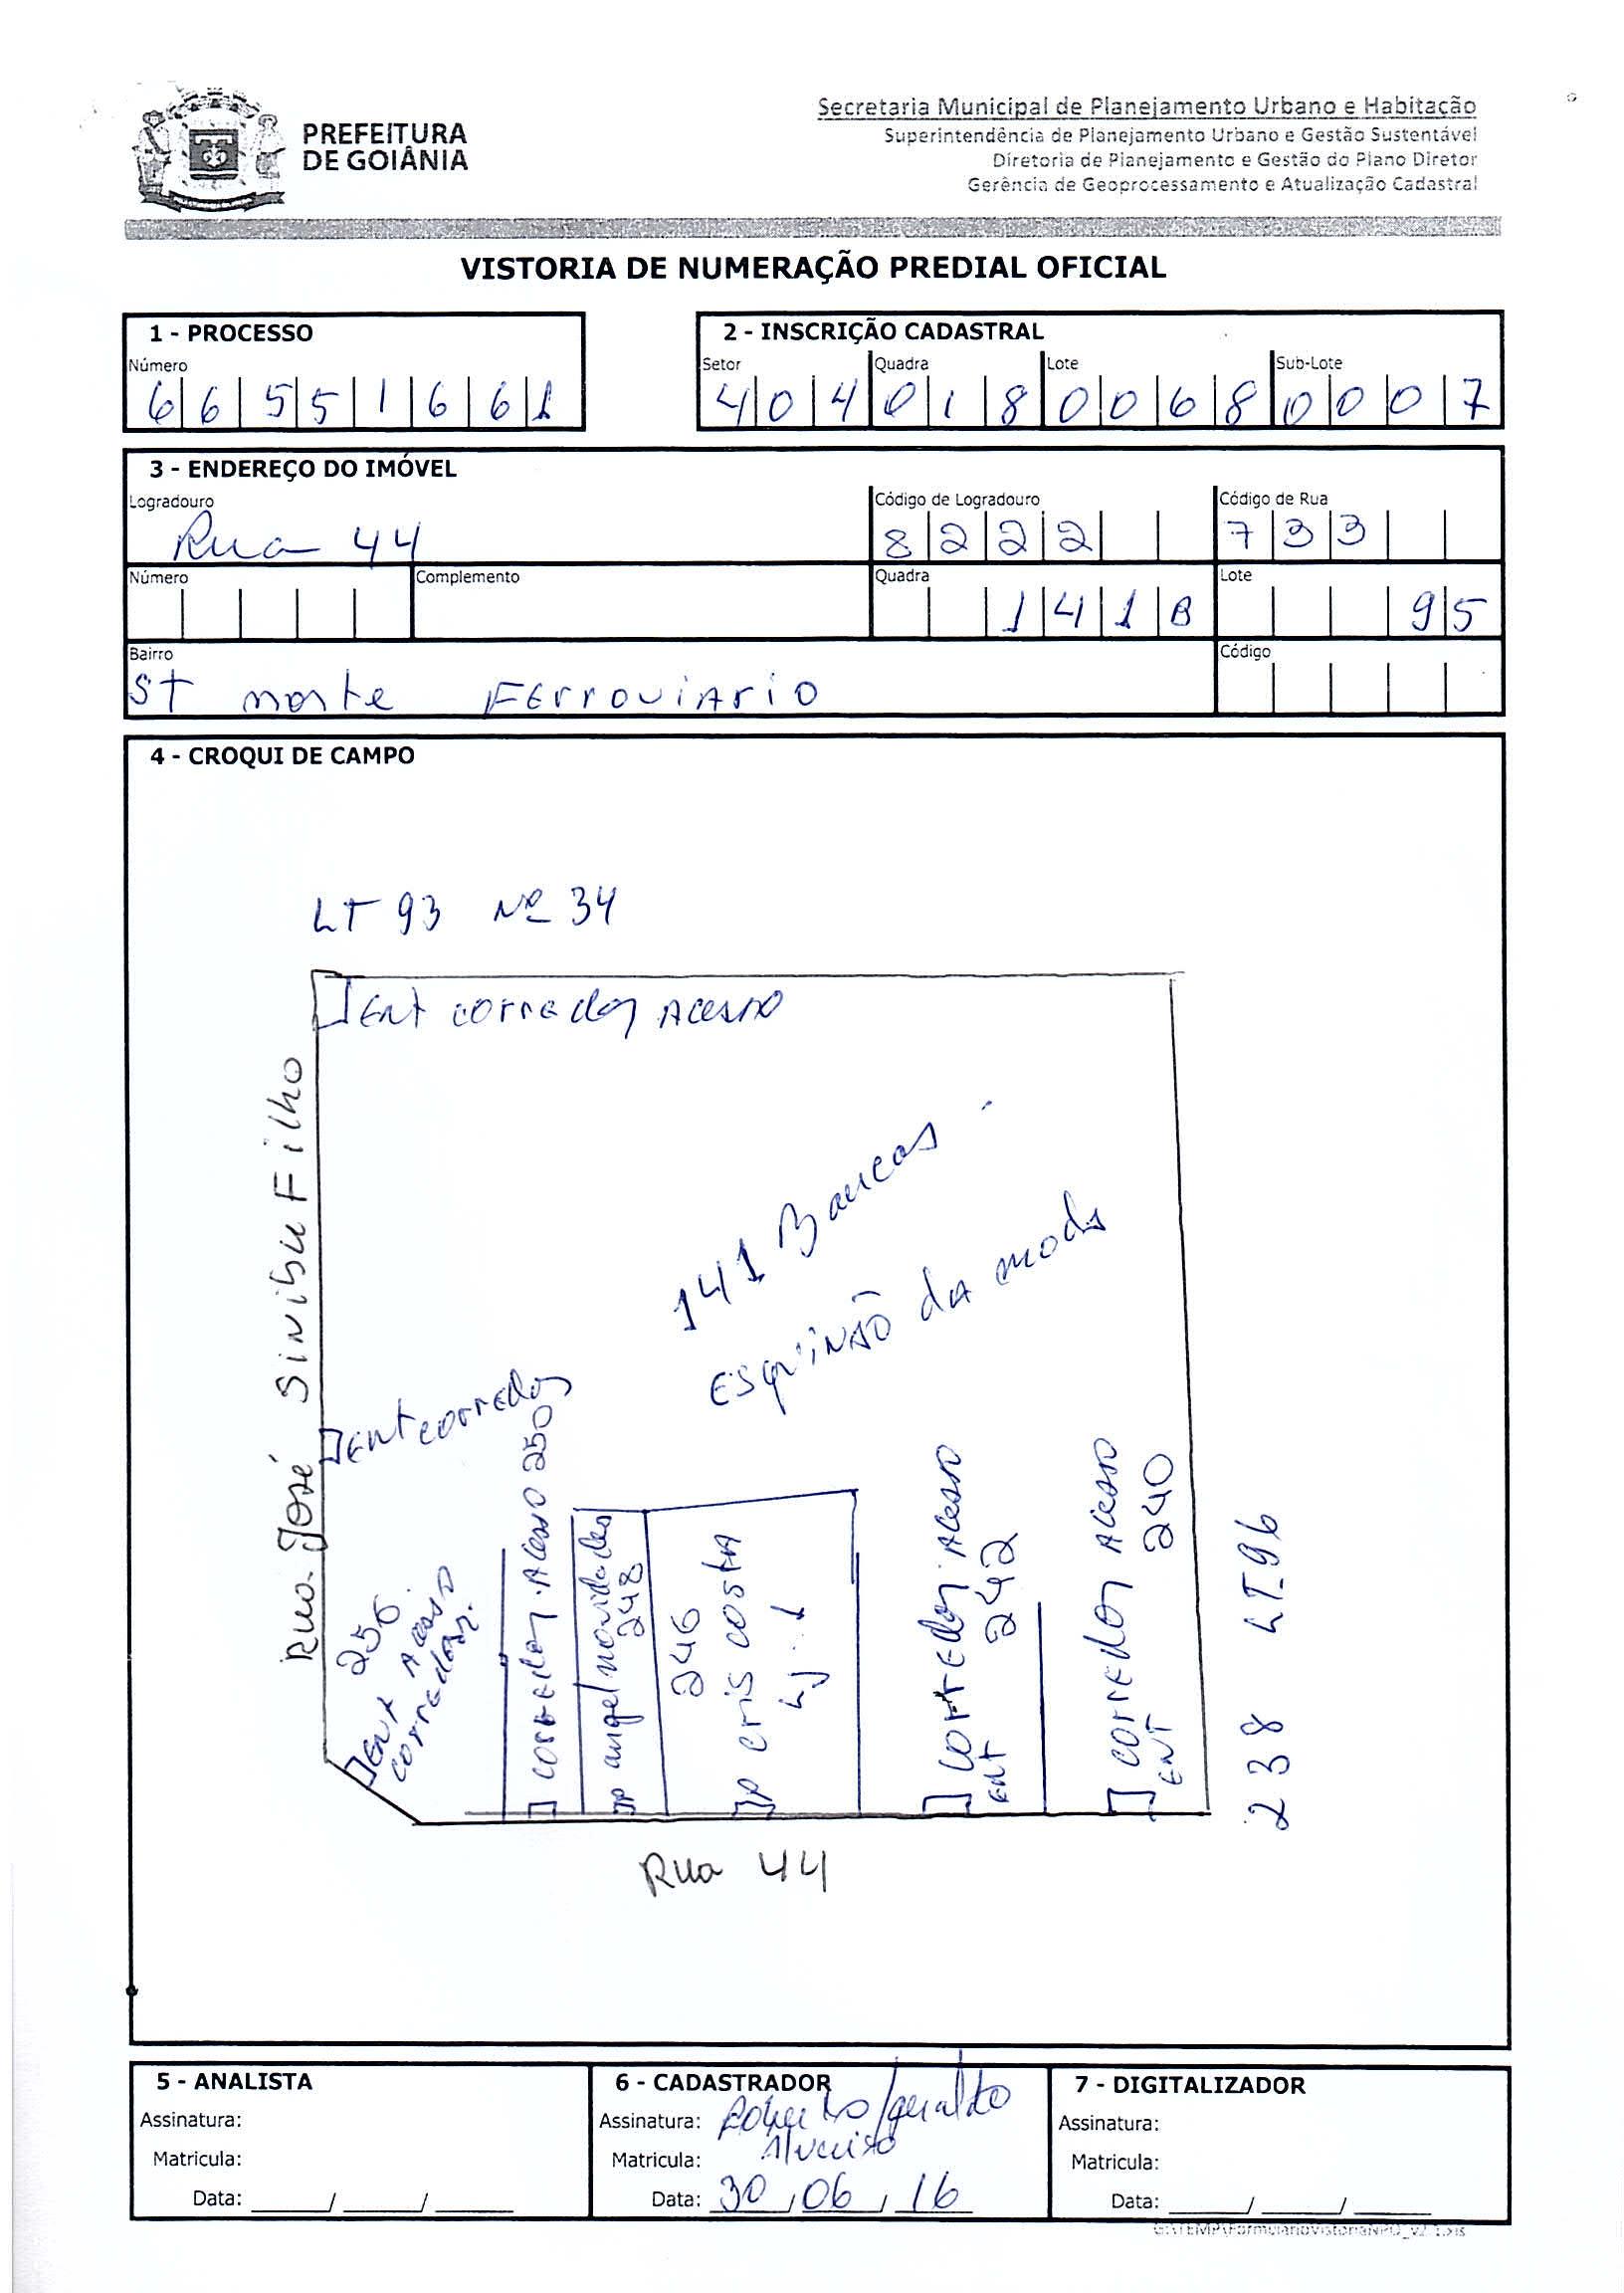 PREFEITURA
DE GOIÂNIA
Secretaria Municipal de Planejamento Urbano e Habitação
Superintendência de Planejamento Urbano e Gestão Sustentável
Diretoria de Planejamento e Gestão do Plano Diretor
Gerência de Geoprocessamento e Atualização Cadastral
VISTORIA DE NUMERAÇÃO PREDIAL OFICIAL
1 - PROCESSO
Número
66551661
2 - INSCRIÇÃO CADASTRAL
Setor Quadra Lote Sub-Lote
404 018 0068 0007
3 - ENDEREÇO DO IMÓVEL
Logradouro Código de Logradouro Código de Rua
Rua 44 8222 733
Número Complemento Quadra Lote
141B 95
Bairro Código
ST norte FErroviArio
4 - CROQUI DE CAMPO
LT 93 Nº 34
Ent corredor Acesso
Rua José Sinibu Filho
141 Bancas
ESquiNÃO dA moda
Ent corredor
256
Ent Acesso
corredor
corredor Acesso 250
angel novidades
248
246
cris costA
LJ. 1
corredor Acesso
Ent 242
corredor Acesso
Ent 240
238 LT 96
Rua 44
5 - ANALISTA
Assinatura:
Matricula:
Data: ____/____/____
6 - CADASTRADOR
Assinatura: Roberto/geraldo
Matricula:
Data: 30/06/16
7 - DIGITALIZADOR
Assinatura:
Matricula:
Data: ____/____/____
G:\TEMP\FormularioVistoriaNPO_v2_1.xls